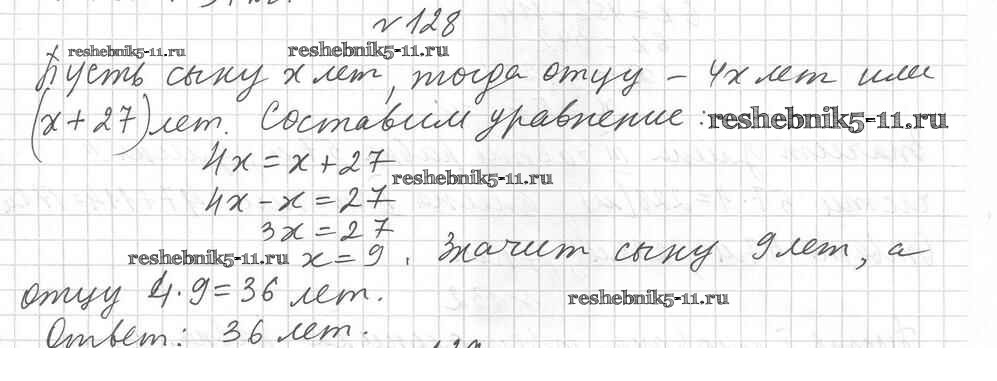 № 128
reshebnik5-11.ru reshebnik5-11.ru
Пусть сыну x лет, тогда отцу – 4x лет или
(x + 27) лет. Составим уравнение: reshebnik5-11.ru
4x = x + 27
reshebnik5-11.ru
4x - x = 27
3x = 27
reshebnik5-11.ru x = 9. Значит сыну 9 лет, а
отцу 4·9 = 36 лет.
reshebnik5-11.ru
Ответ: 36 лет.